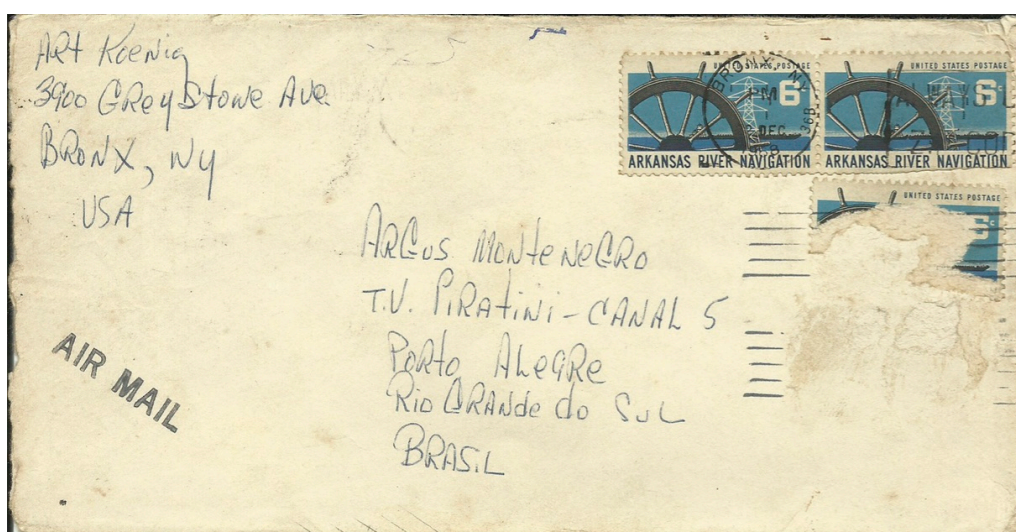 Art Koenig
3900 GReyStone Ave.
BRONX, Ny
USA
UNITED STATES POSTAGE
6c
ARKANSAS RIVER NAVIGATION
UNITED STATES POSTAGE
6c
ARKANSAS RIVER NAVIGATION
BRONX, NY
PM
DEC
UNITED STATES POSTAGE
ARGUS MONteNeGRO
T.V. PiRAtiNi - CANAL 5
PORto AleGRe
Rio GRANde do Sul
BRASiL
AIR MAIL